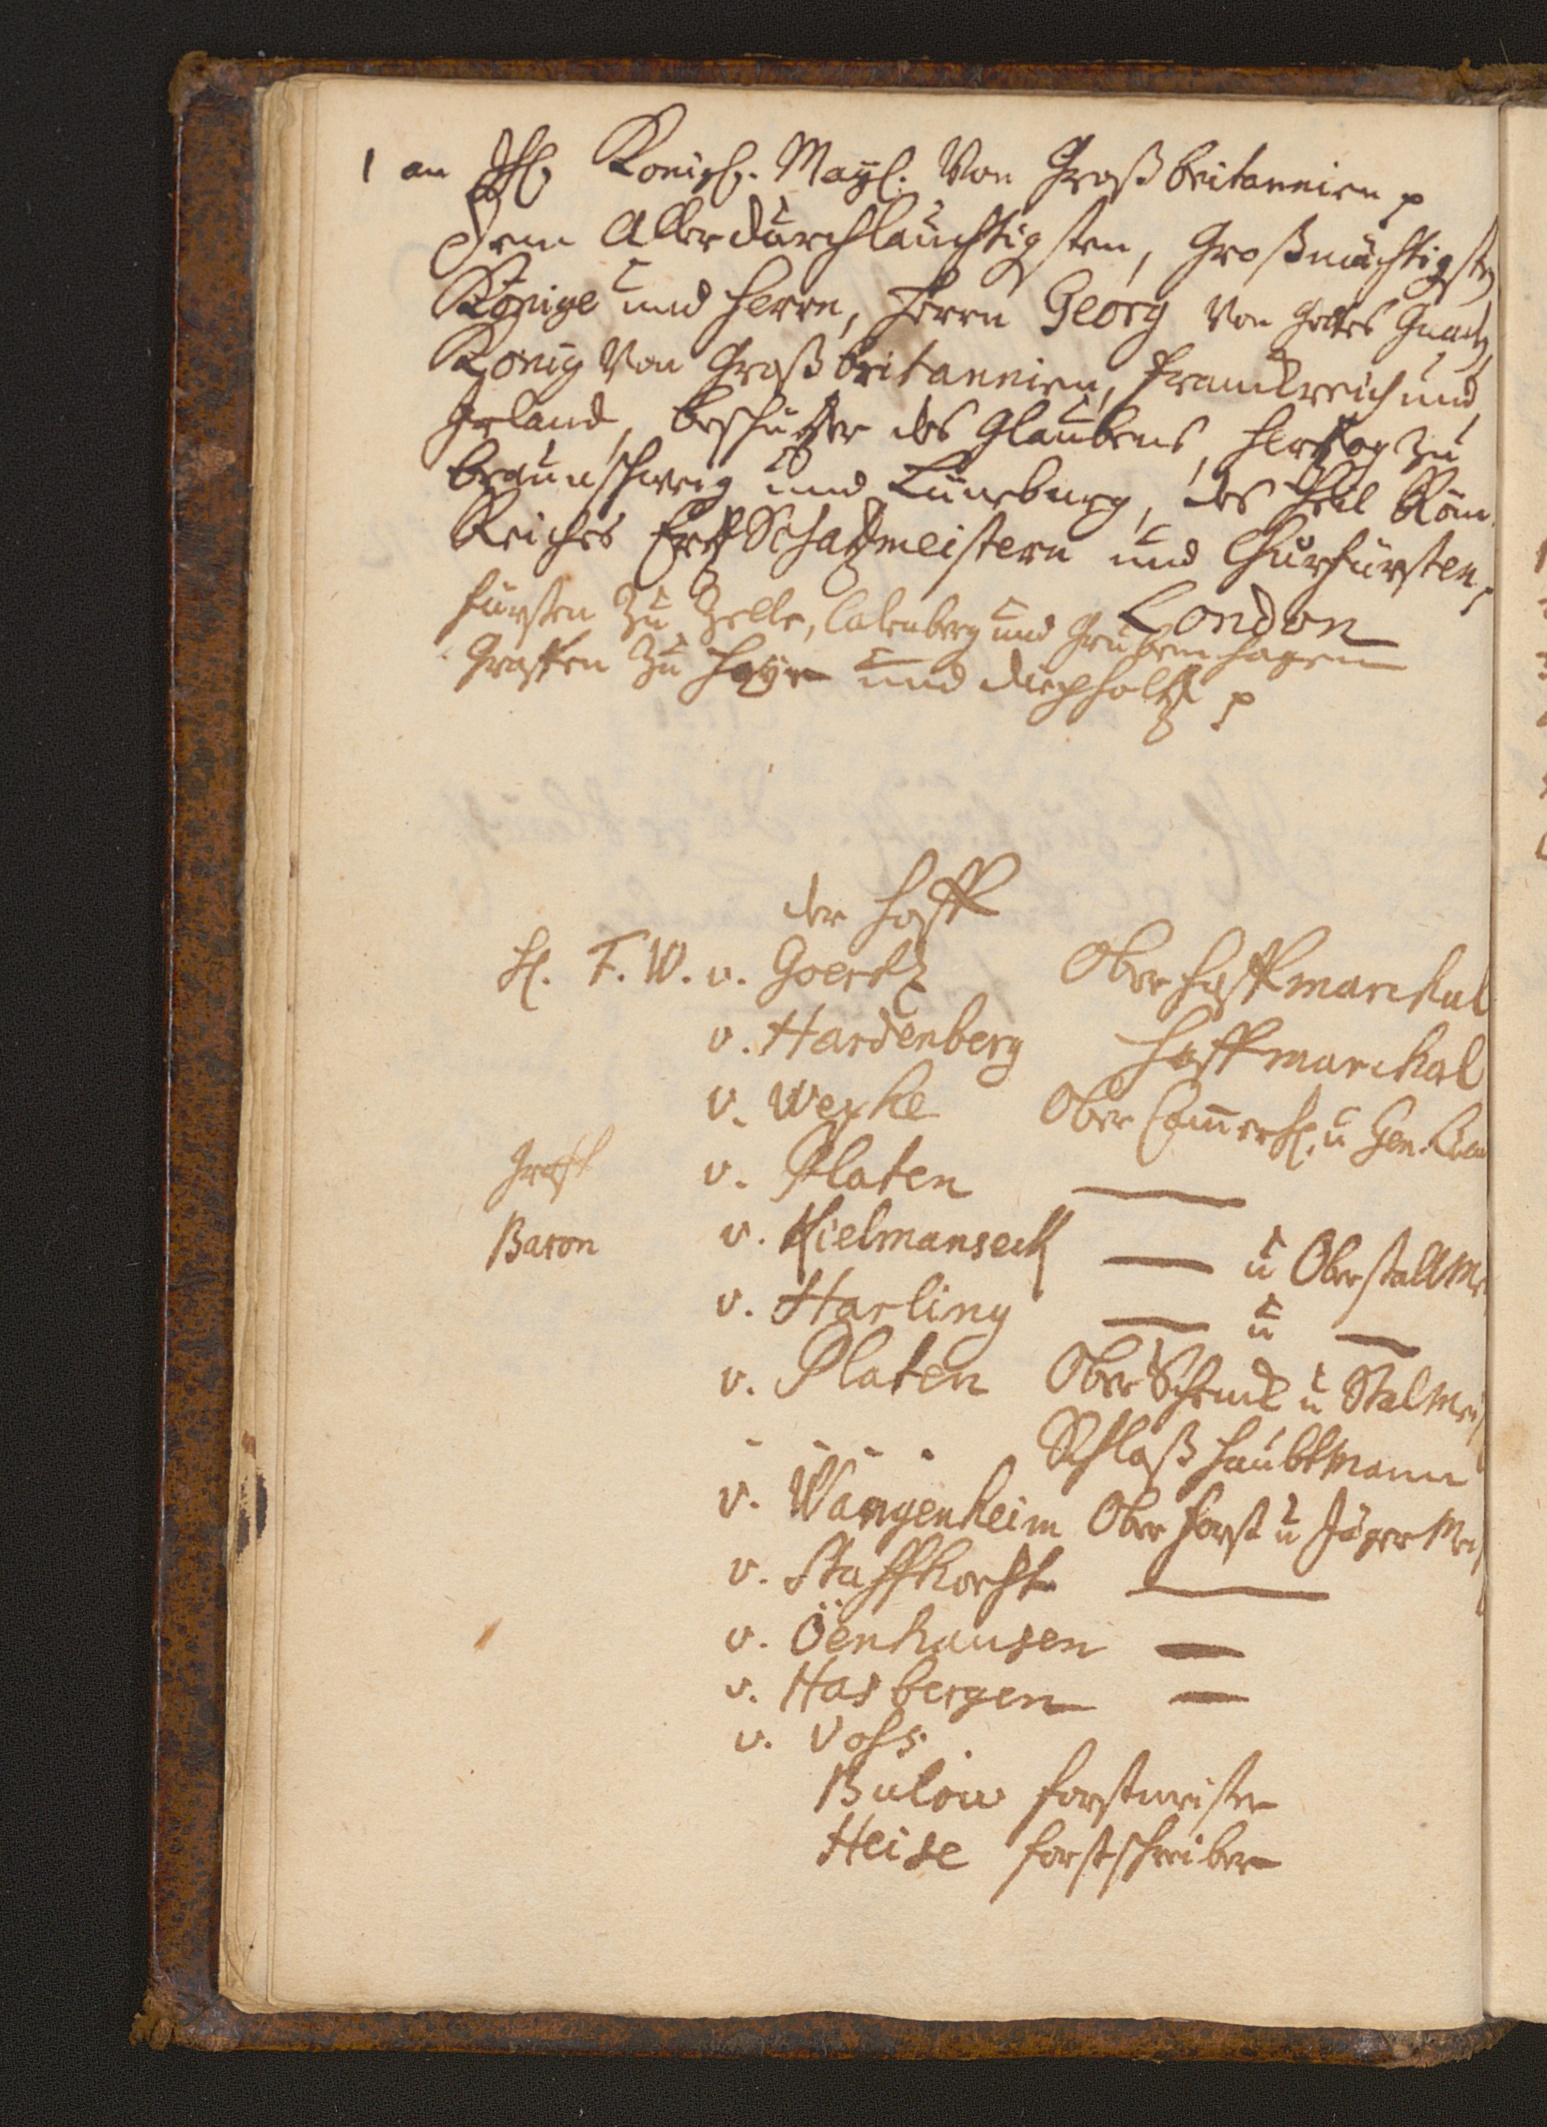 1 an Ihl. Königl. Mayl. Von Großbritannien p
Dem Allerdurchlauchtigsten, Großmächtigsten
Könige und Herrn, Herrn Georg Von Gottes Gnaden
König Von Großbritannien, Franckreich und
Irland, Beschützer des Glaubens, Hertzog zu
Braunschweig und Lüneburg, des Heil Röm.
Reiches ErtzSchatzmeistern und Churfürsten p
London
fürsten Zu Zelle, Calenberg und Grubenhagen
Graffen Zu Hoye und Diepholtz p
der Hoff
H. F. W. v. Goertz Ober Hoffmarchal
v. Hardenberg Hoffmarchal
v. Weyhe Ober Cam̄erh. u Gen.
Graff v. Platen —
Baron v. Kielmanseck — u OberstallM
v. Harling — u —
v. Platen Ober Schenck u StalMeis
- - - - Schloß Haubtmann
v. Wangenheim Ober Forst u JägerMei
v. Staffhorst —
v. Öenhausen —
v. Hasbergen —
v. Voss.
Bulow forstmeister
Heise forstschreiber